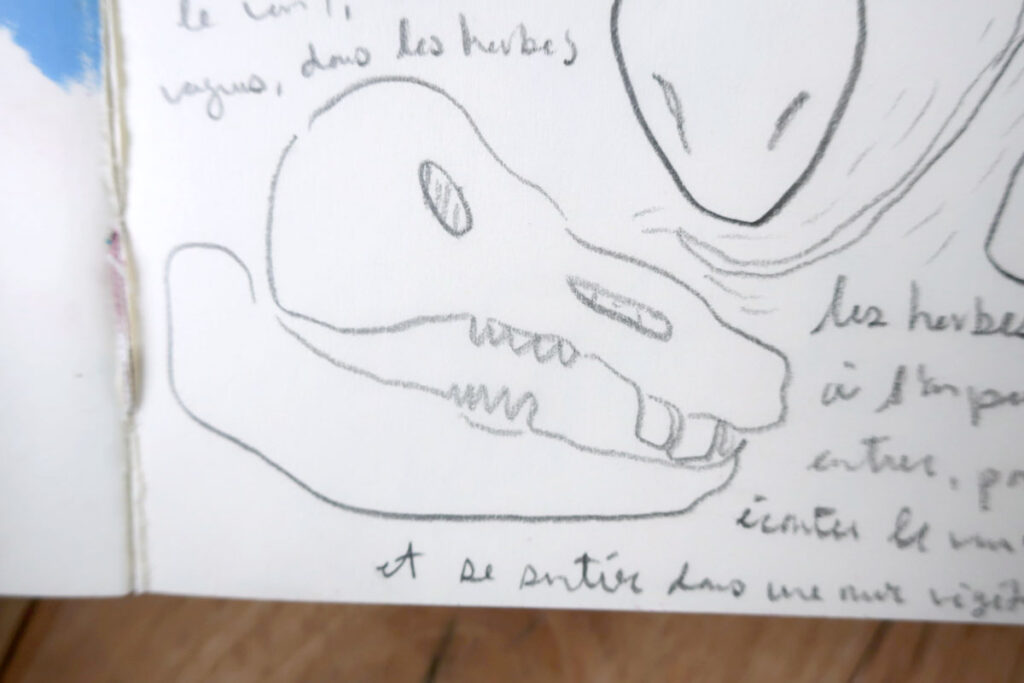 le vent,
vagues, dans les herbes
les herbes
à
entrer,
écouter le
et se sentir dans une mer